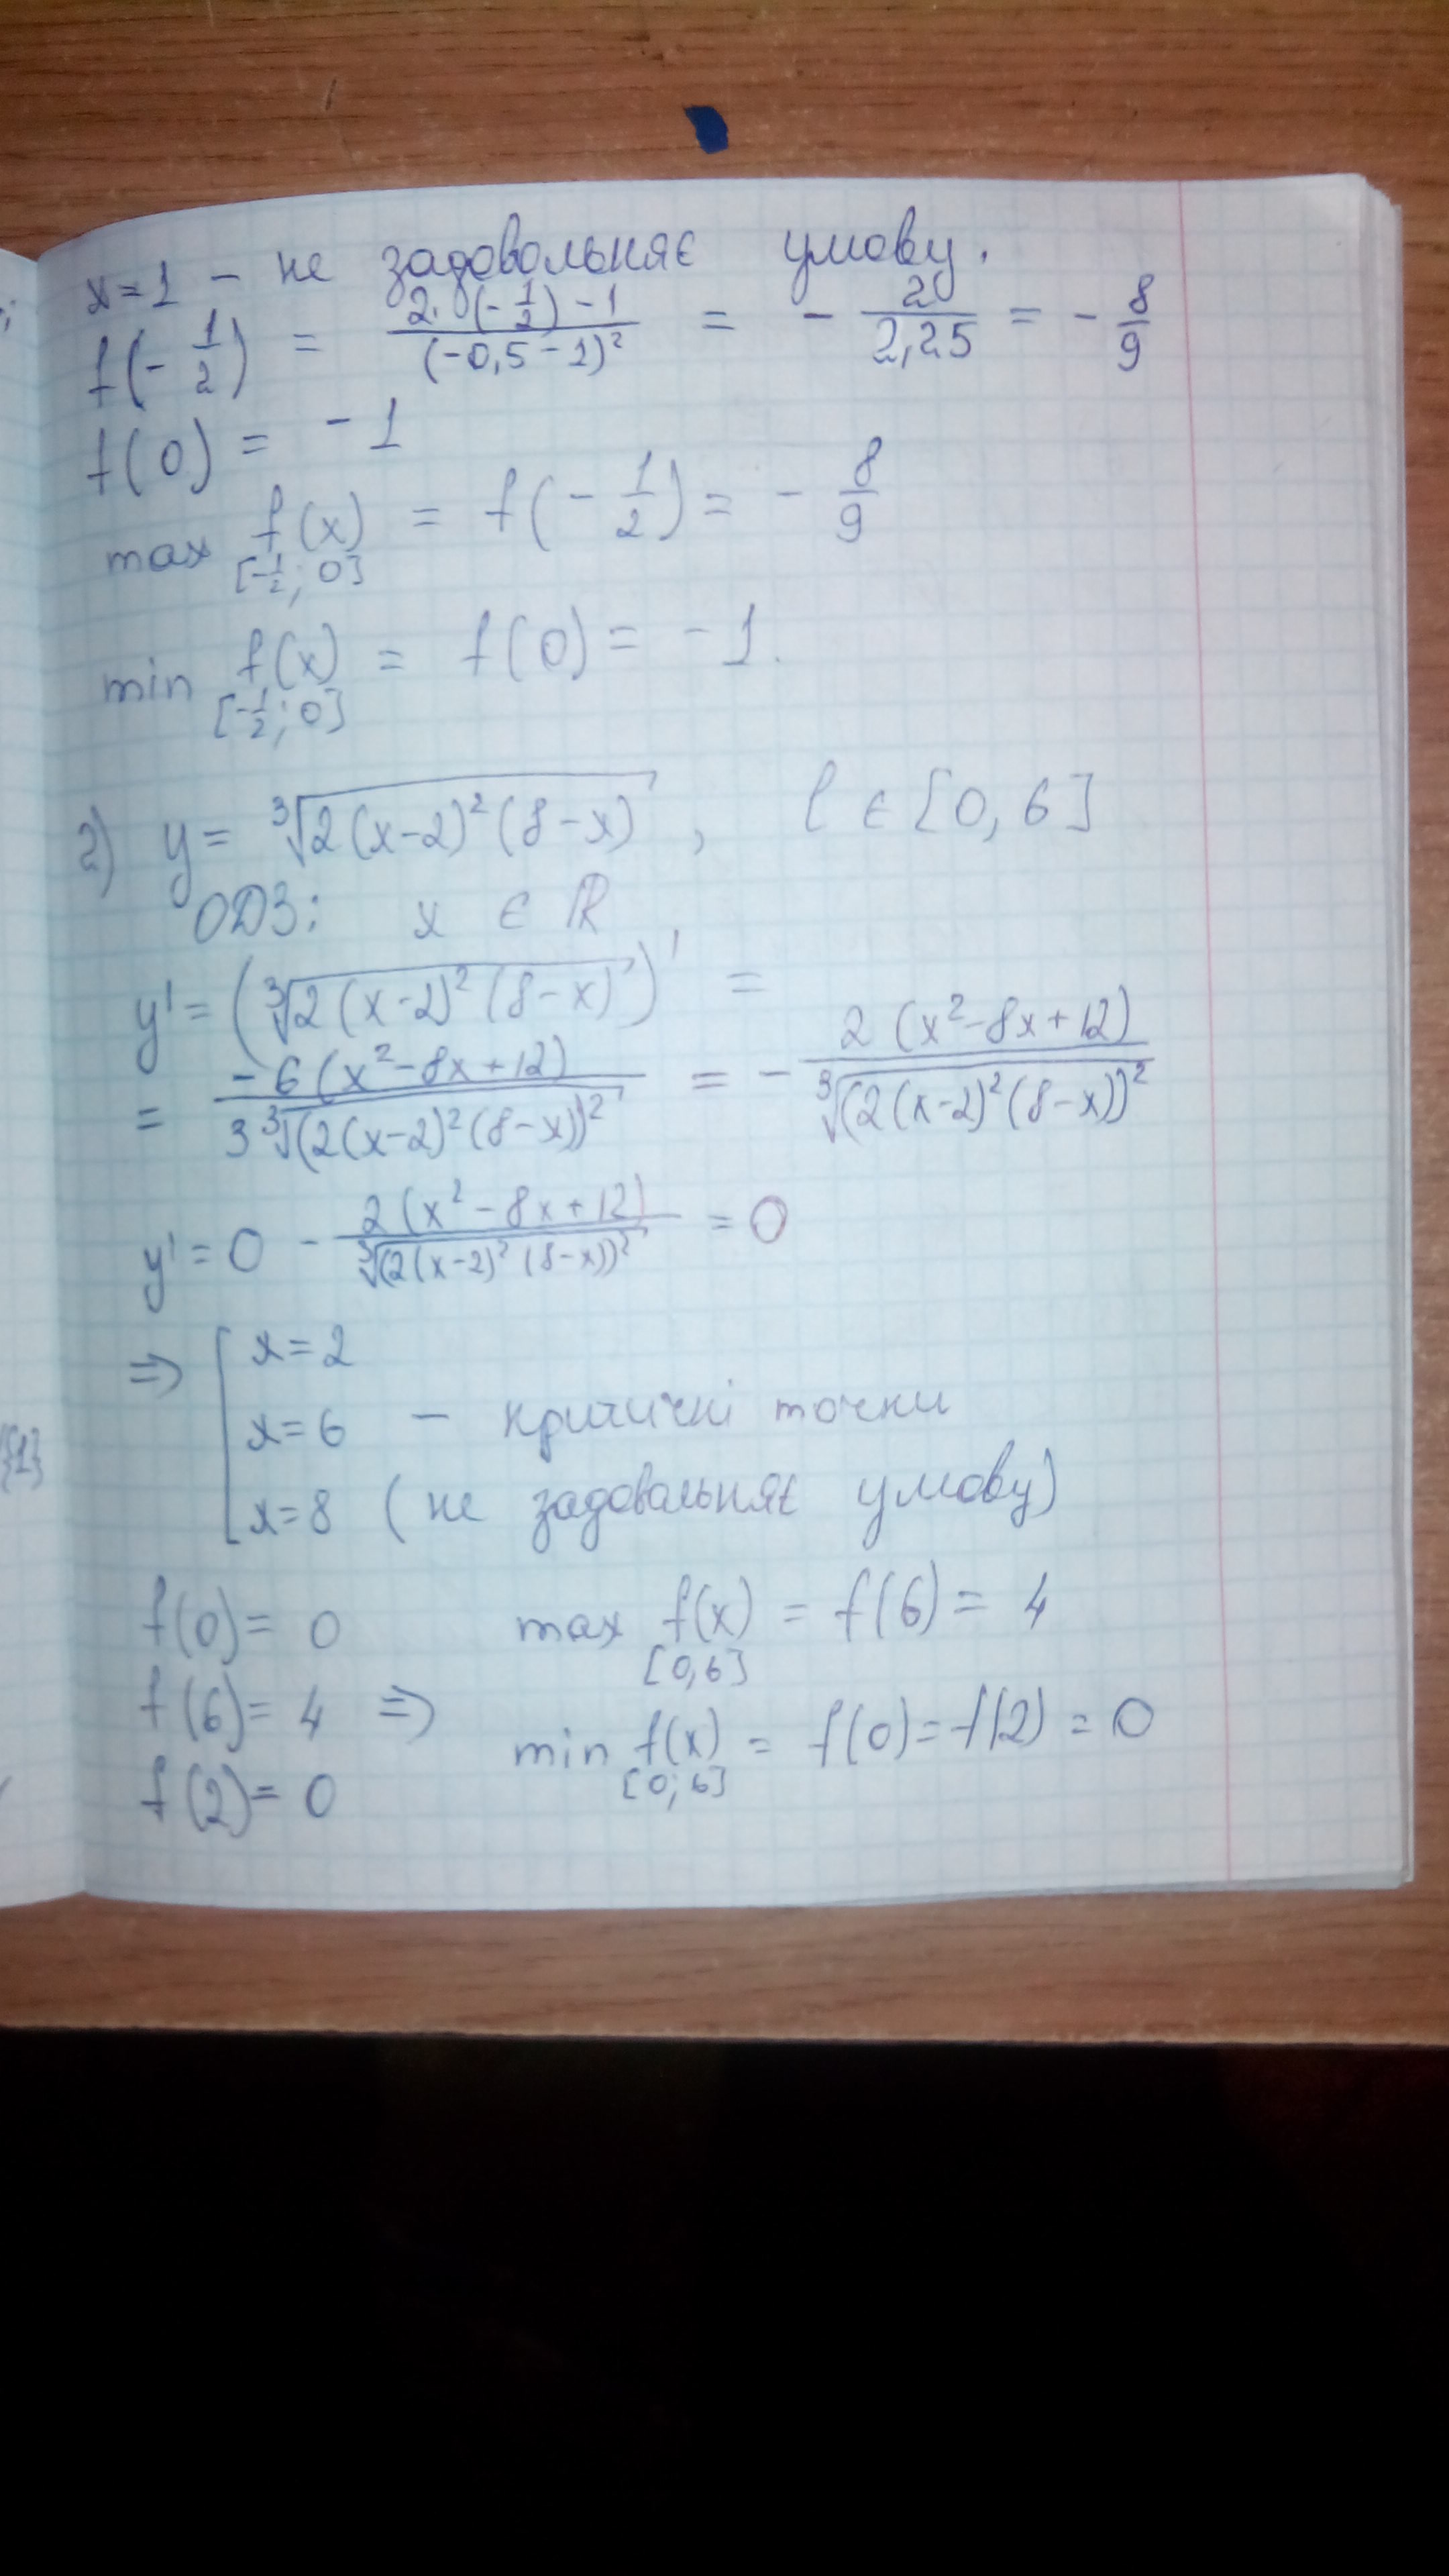 x=1 – не задовольняє умову.
f(-1/2) = (2·(-1/2)-1)/(-0,5-1)² = - 2/2,25 = - 8/9
f(0) = -1
max f(x) = f(-1/2) = - 8/9
[-1/2; 0]
min f(x) = f(0) = -1.
[-1/2; 0]
2) y = ∛(2(x-2)²(8-x)) , l ∈ [0, 6]
ОДЗ: x ∈ ℝ
y' = (∛(2(x-2)²(8-x)))' =
= -6(x²-8x+12)/(3∛(2(x-2)²(8-x))²) = - 2(x²-8x+12)/∛(2(x-2)²(8-x))²
y' = 0 - 2(x²-8x+12)/∛(2(x-2)²(8-x))² = 0
⇒ [ x=2
x=6 – критичні точки
x=8 (не задовольняє умову)
f(0) = 0 max f(x) = f(6) = 4
[0,6]
f(6) = 4 ⇒ min f(x) = f(0) = f(2) = 0
[0; 6]
f(2) = 0
{1}